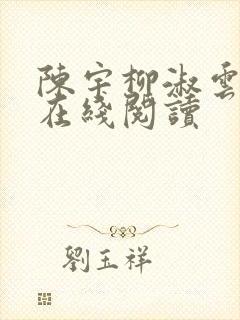 陳宇柳淑雲
在綫閱讀
劉玉祥